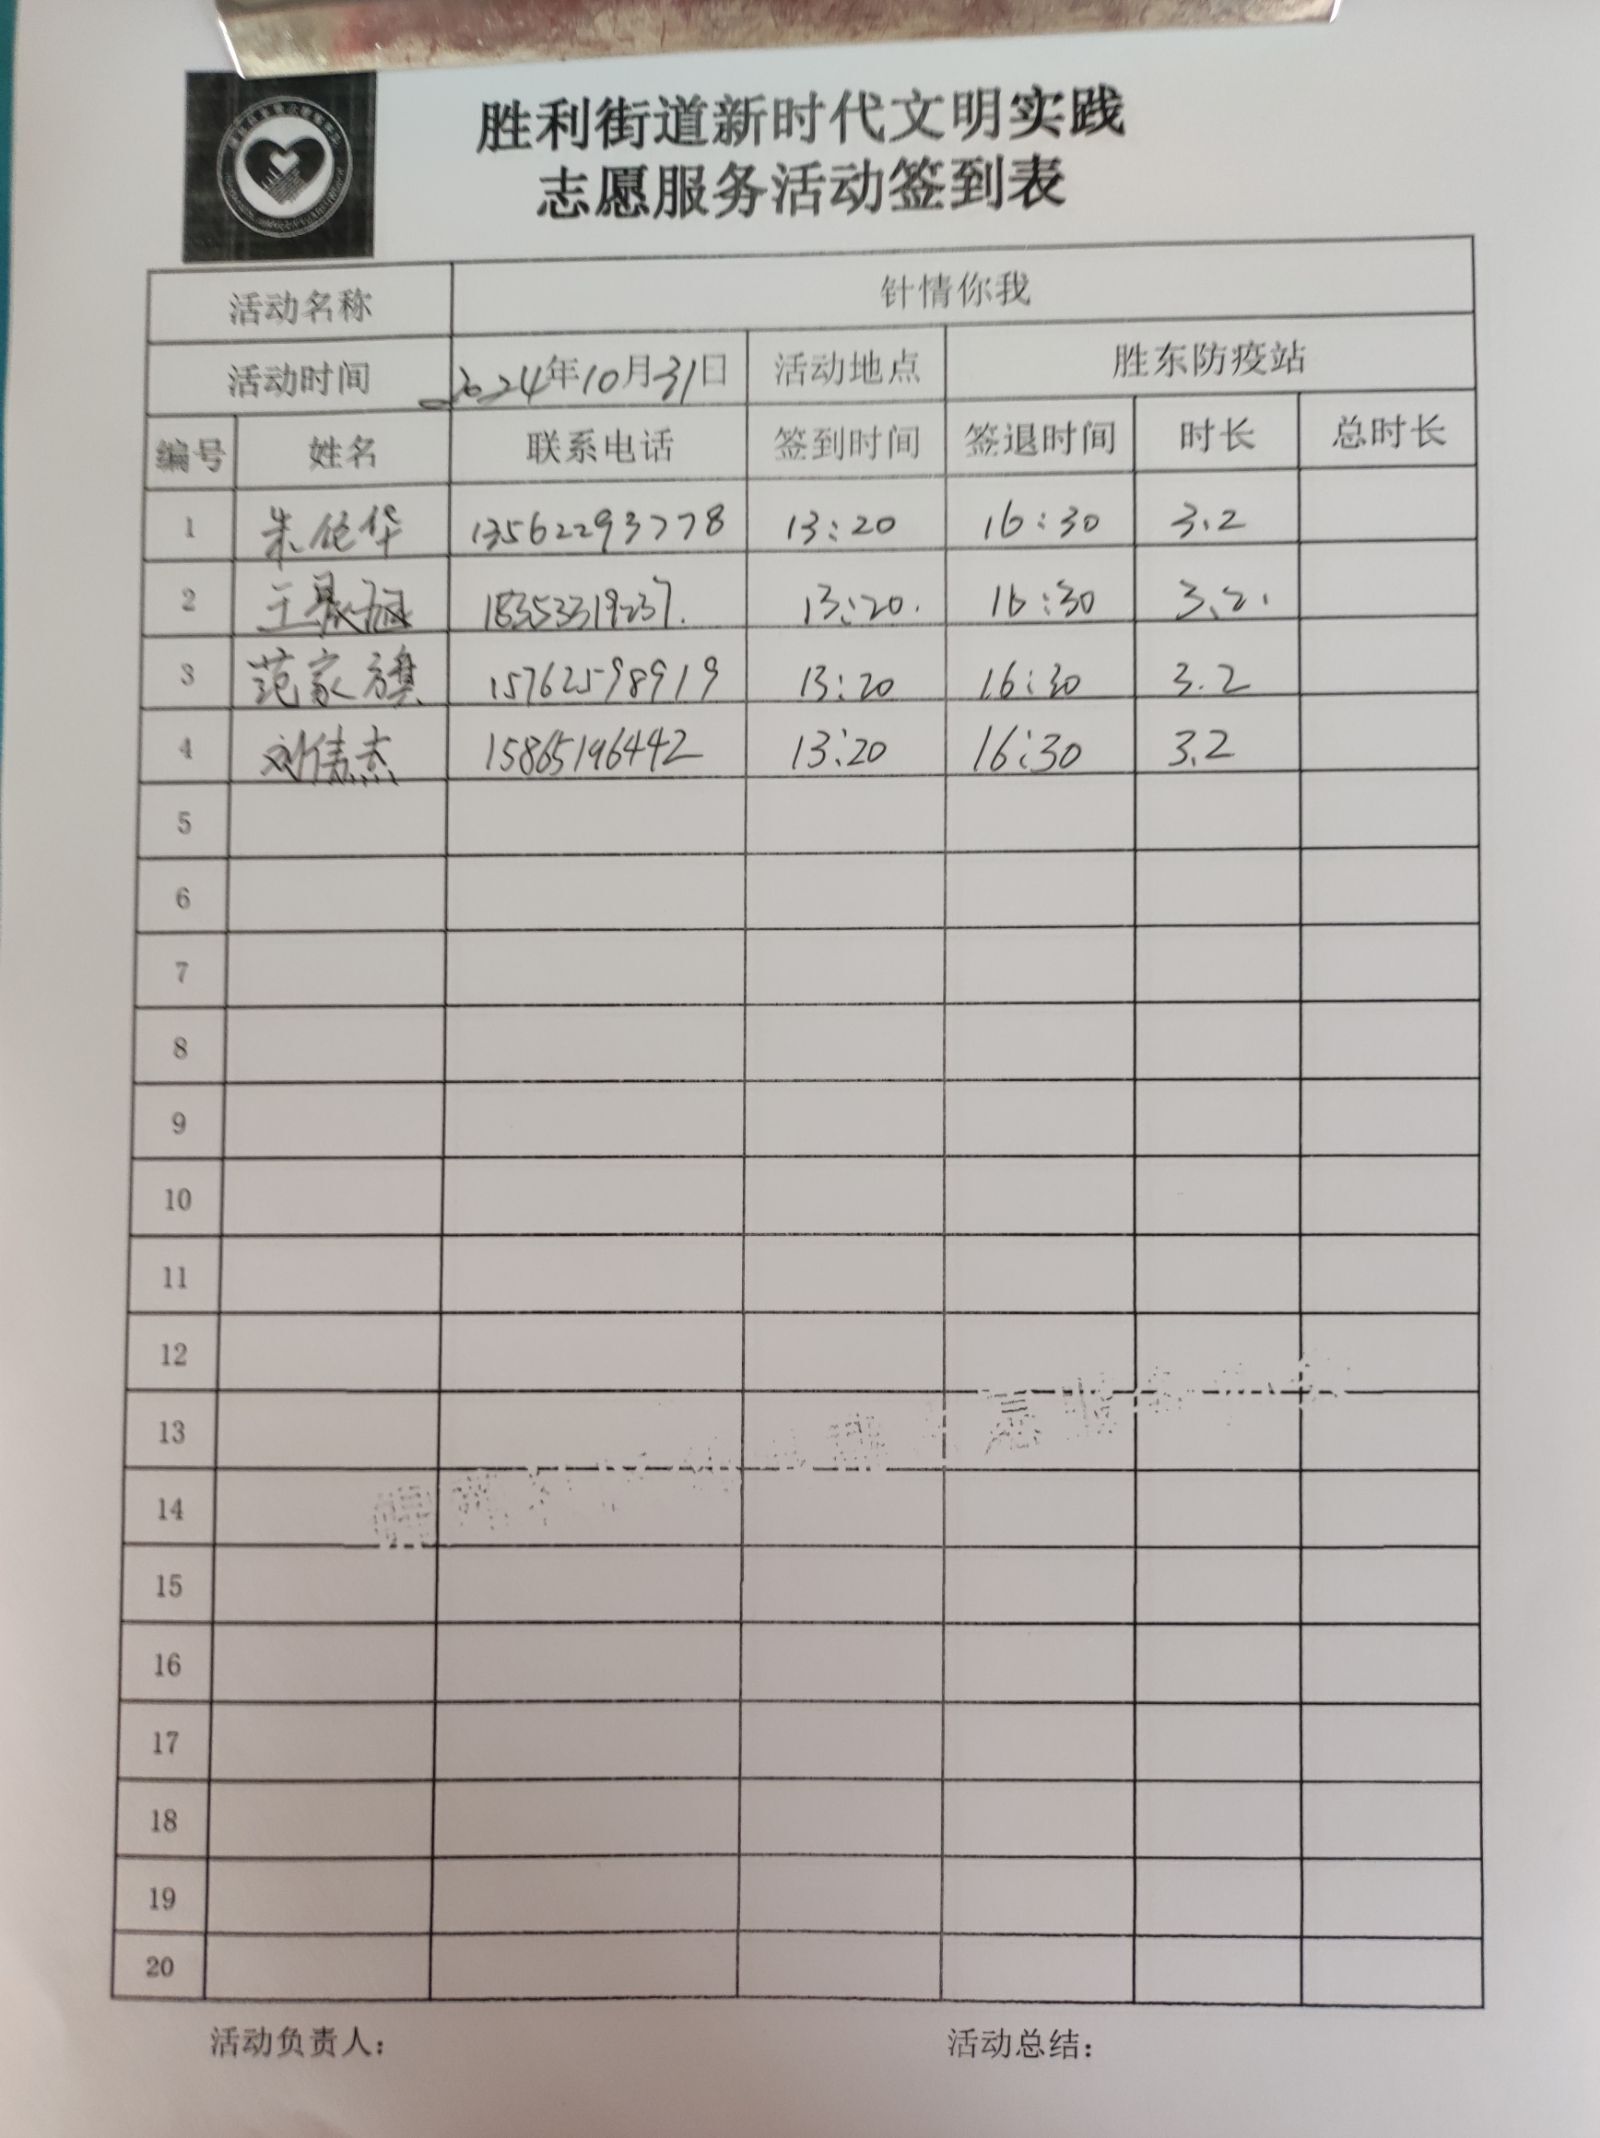 胜利街道新时代文明实践
志愿服务活动签到表
活动名称 针情你我
活动时间 2024年10月31日 活动地点 胜东防疫站
编号 姓名 联系电话 签到时间 签退时间 时长 总时长
1 朱 华 13562293778 13:20 16:30 3.2
2 王 18353319237. 13:20. 16:30 3.2.
3 范家旗 15762598919 13:20 16:30 3.2
4 刘倩杰 15865196442 13:20 16:30 3.2
5
6
7
8
9
10
11
12
13
14
15
16
17
18
19
20
活动负责人: 活动总结: